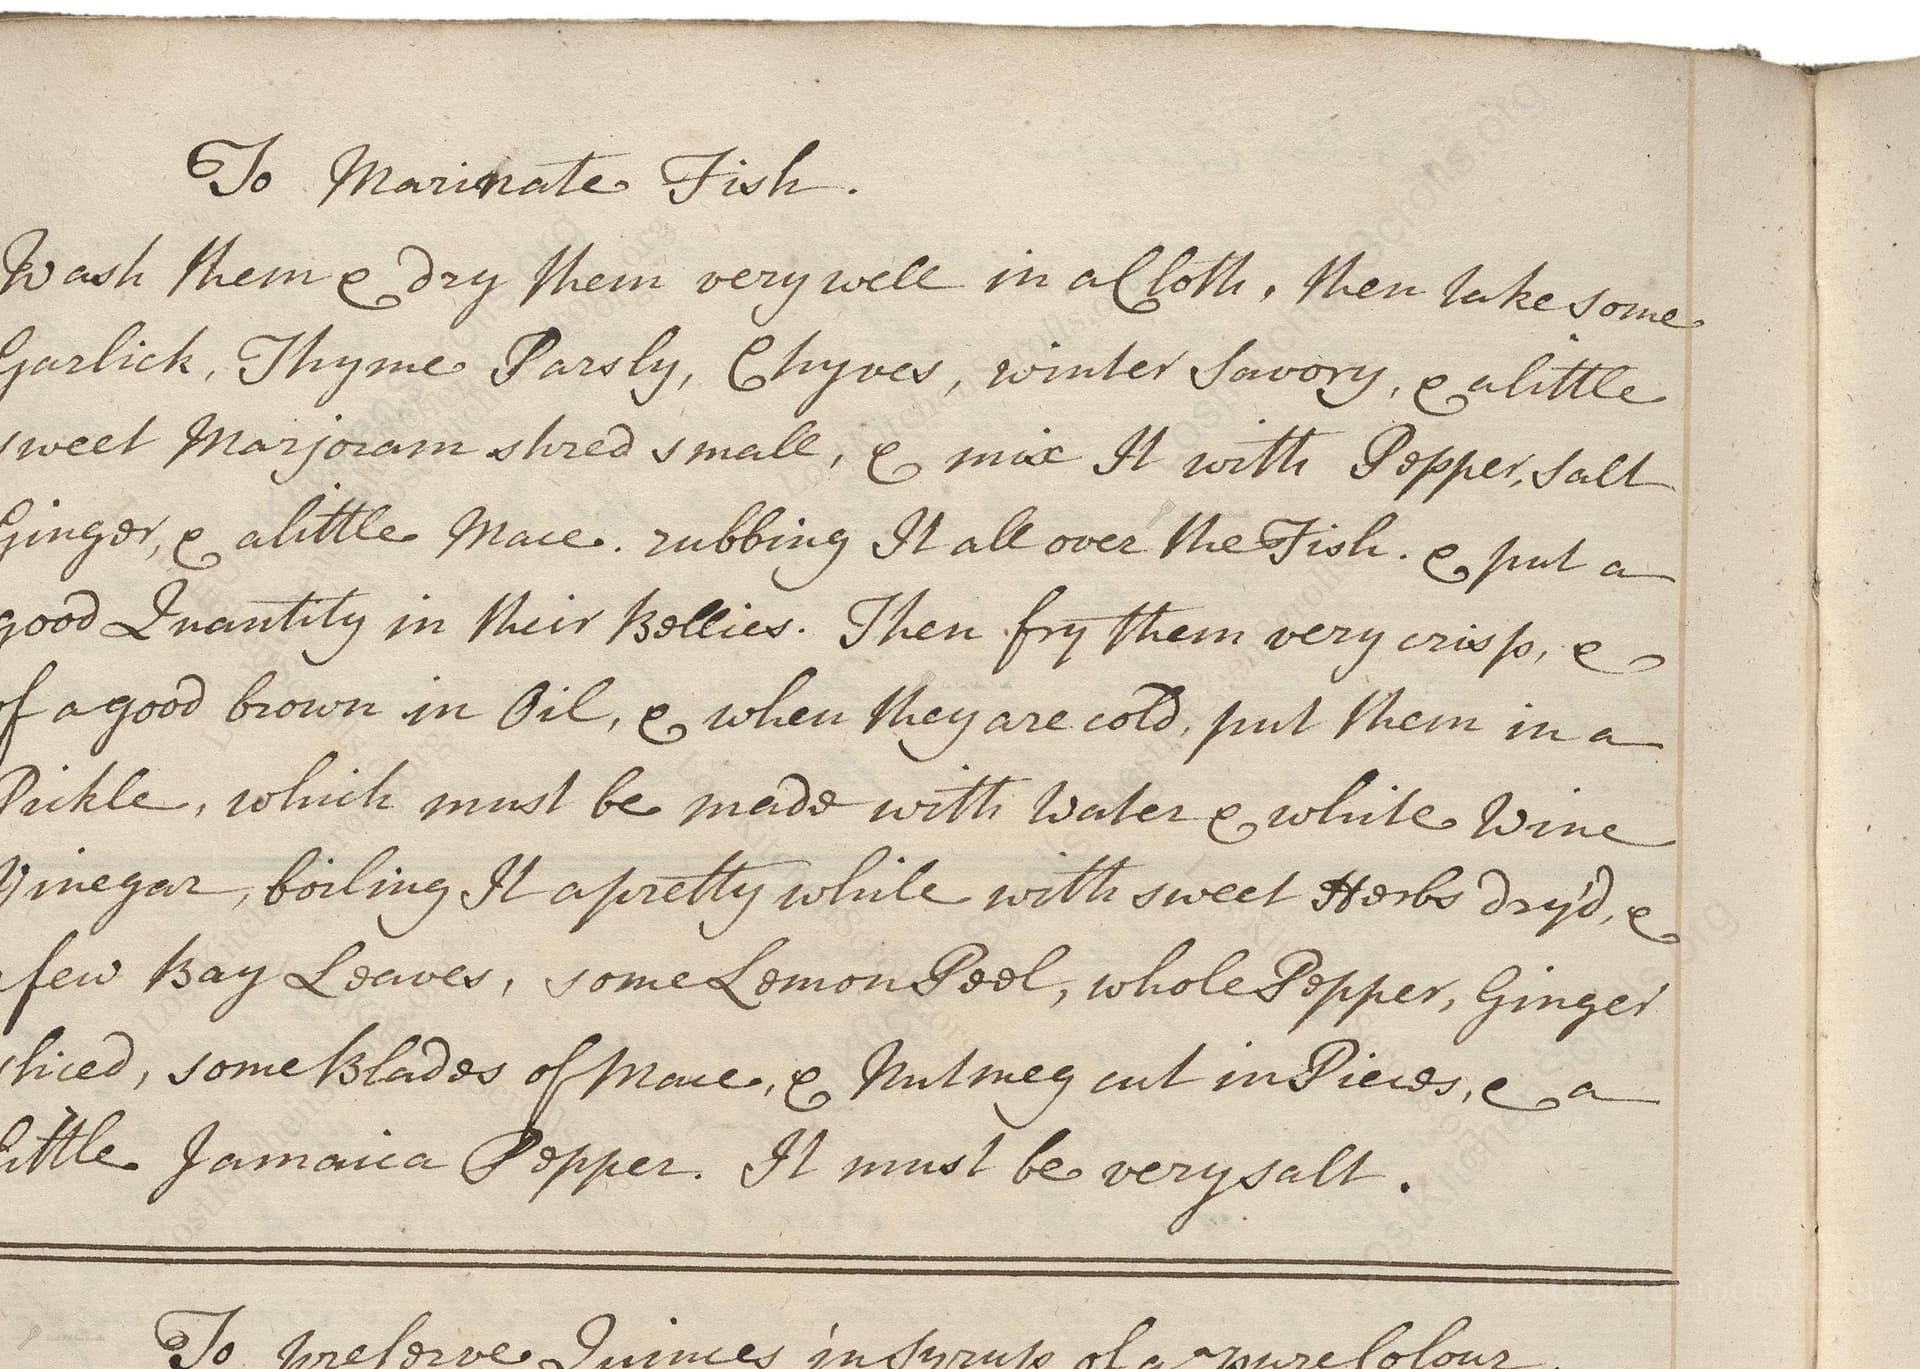 To Marinate Fish.
Wash them & dry them very well in a Cloth, then take some
Garlick, Thyme Parsly, Chyves, winter Savory, & a little
sweet Marjoram shred small, & mix It with Pepper, Salt
Ginger, & a little Mace. rubbing It all over the Fish. & put a
good Quantity in their Bellies. Then fry them very crisp, &
of a good brown in Oil, & when they are cold, put them in a
Pickle, which must be made with Water & white Wine
Vinegar, boiling It a pretty while with sweet Herbs dry'd, &
a few Bay Leaves, some Lemon Peel, whole Pepper, Ginger
sliced, some Blades of Mace, & Nutmeg cut in Pieces, & a
little Jamaica Pepper. It must be very salt.
To preserve Quinces in Syrup of a pure Colour.